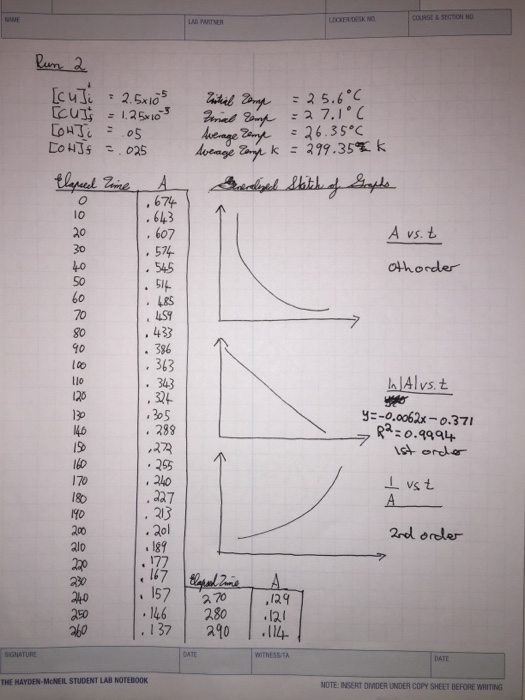 NAME LAB PARTNER LOCKER/DESK NO. COURSE & SECTION NO.
Run 2
[CU]i = 2.5x10^-5 Initial Temp = 25.6°C
[CU]f = 1.25x10^-3 Final Temp = 27.1°C
[OH]i = .05 Average Temp = 26.35°C
[OH]f = .025 Average Temp K = 299.35 K
Elapsed Time A Generalized Sketch of Graphs
0 .674
10 .643
20 .607 A vs. t
30 .574
40 .545 0th order
50 .514
60 .485
70 .459
80 .433
90 .386
100 .363
110 .343 ln|A| vs. t
120 .324
130 .305 y=-0.0062x-0.371
140 .288 R²=0.9994
150 .272 1st order
160 .255
170 .240 1/A vs t
180 .227
190 .213
200 .201 2nd order
210 .189
220 .177
230 .167 Elapsed Time A
240 .157 270 .129
250 .146 280 .121
260 .137 290 .114
SIGNATURE DATE WITNESS/TA DATE
THE HAYDEN-McNEIL STUDENT LAB NOTEBOOK NOTE: INSERT DIVIDER UNDER COPY SHEET BEFORE WRITING